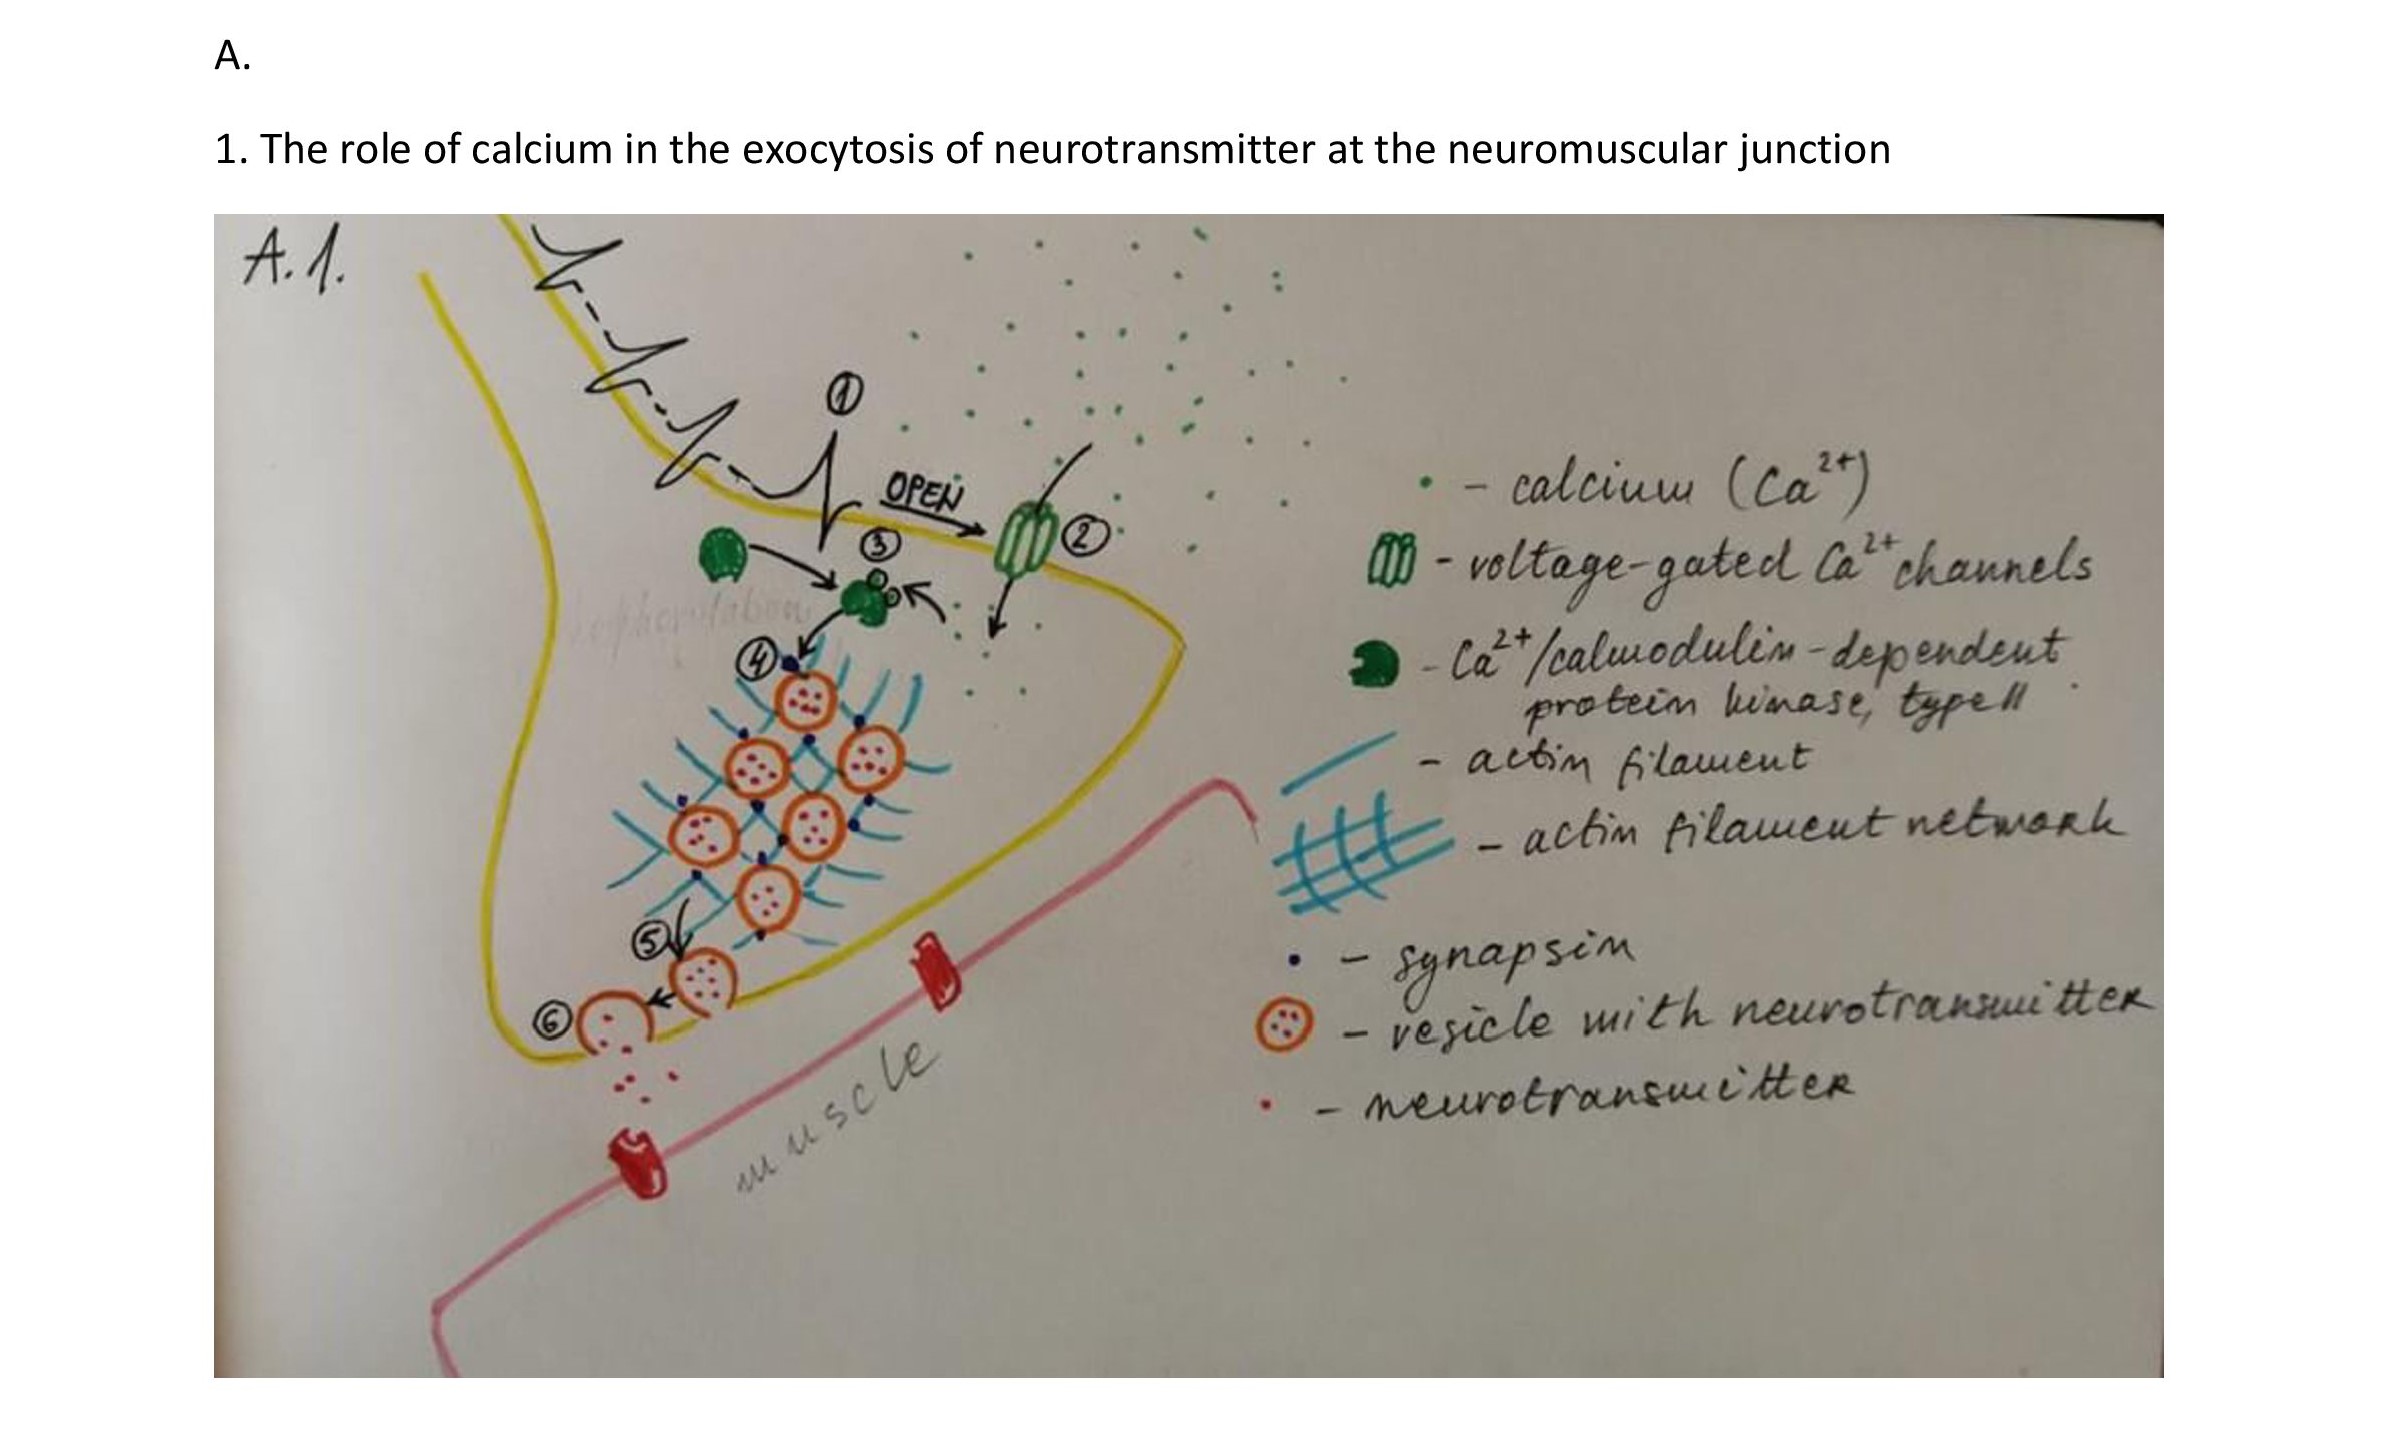 A.
1. The role of calcium in the exocytosis of neurotransmitter at the neuromuscular junction
A.1.
1
OPEN
2
3
4
5
6
muscle
• - calcium (Ca²⁺)
- voltage-gated Ca²⁺ channels
- Ca²⁺/calmodulin-dependent
protein kinase, type II
- actin filament
- actin filament network
• - synapsin
- vesicle with neurotransmitter
• - neurotransmitter